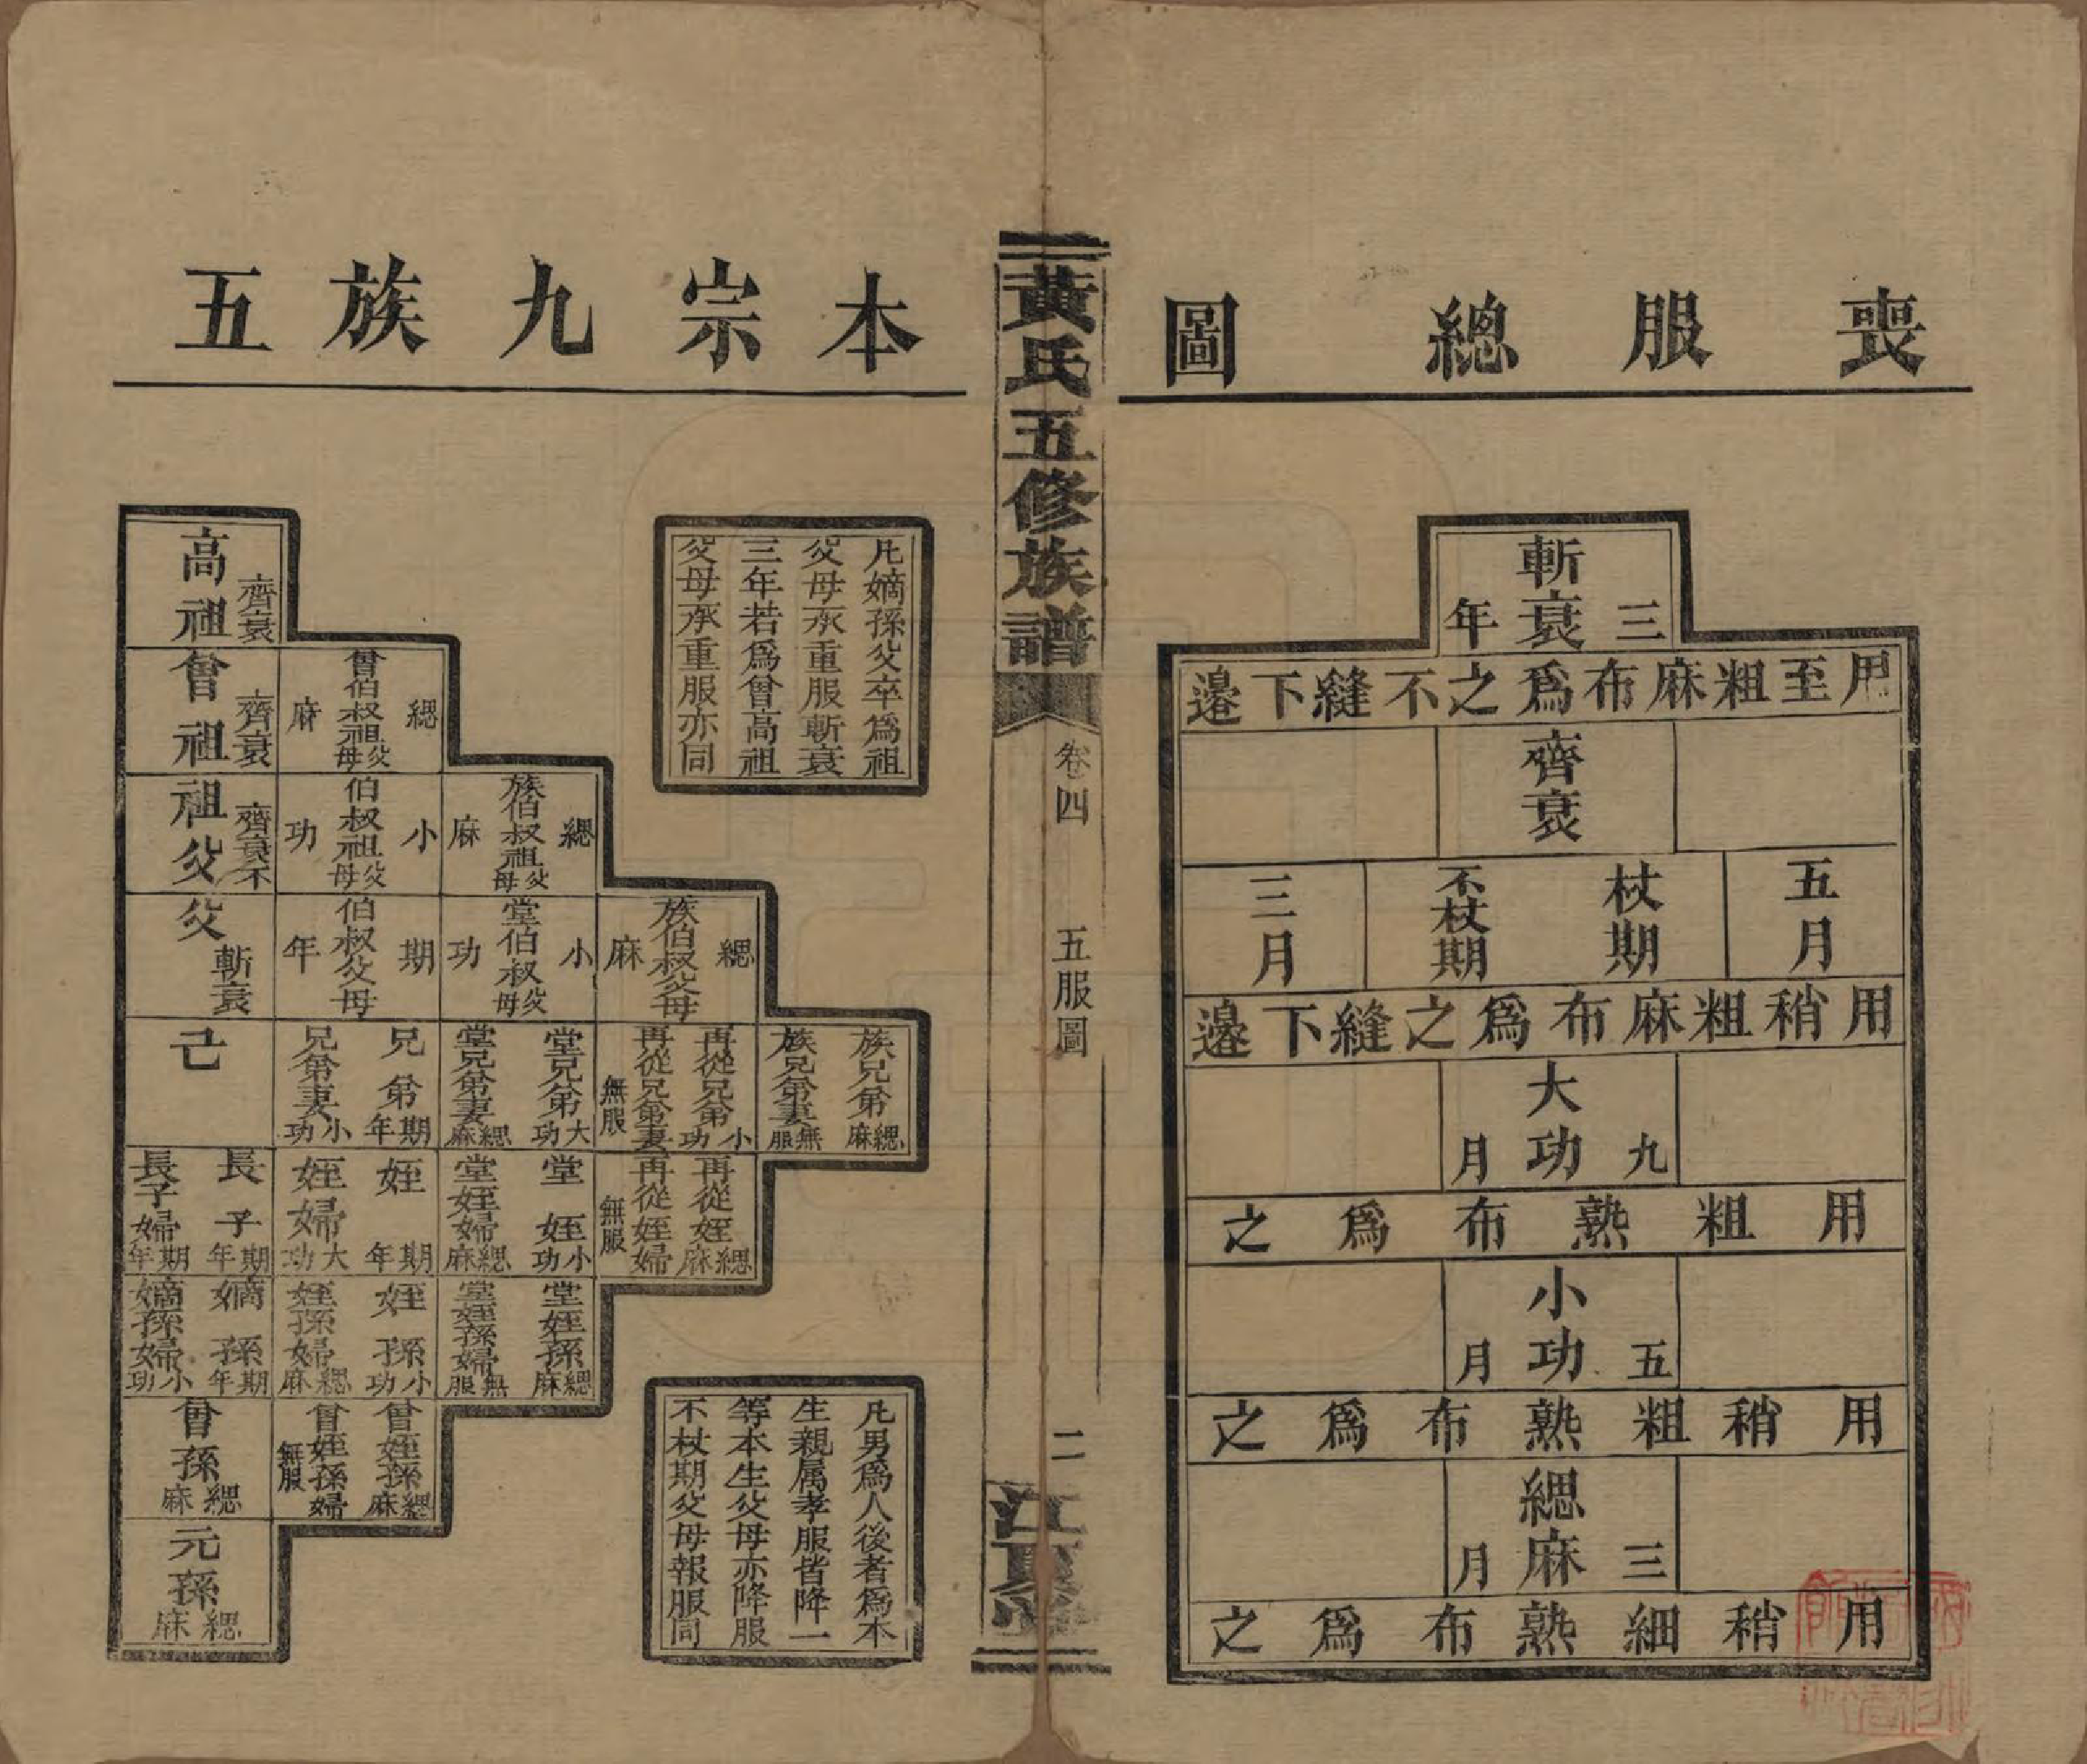 喪服總圖
斬衰
三年
用至粗麻布爲之不縫下邊
齊衰
五月
杖期
不杖期
三月
用稍粗麻布爲之縫下邊
大功
九月
用粗熟布爲之
小功
五月
用稍粗熟布爲之
緦麻
三月
用稍細熟布爲之
黃氏五修族譜
卷四
五服圖
二
江夏堂
本宗九族五
凡嫡孫父卒爲祖
父母承重服斬衰
三年若爲曾高祖
父母承重服亦同
高祖
齊衰
曾祖
齊衰
曾伯叔祖父母
緦麻
祖父
齊衰不
伯叔祖父母
小功
族伯叔祖父母
緦麻
父
斬衰
伯叔父母
期年
堂伯叔父母
小功
族伯叔父母
緦麻
己
兄弟
期年
兄弟妻
小功
堂兄弟
大功
堂兄弟妻
緦麻
再從兄弟
小功
再從兄弟妻
無服
族兄弟
緦麻
族兄弟妻
無服
長子
期年
長子婦
期年
姪
期年
姪婦
大功
堂姪
小功
堂姪婦
緦麻
再從姪
緦麻
再從姪婦
無服
嫡孫
期年
嫡孫婦
小功
姪孫
小功
姪孫婦
緦麻
堂姪孫
緦麻
堂姪孫婦
無服
曾孫
緦麻
曾姪孫
緦麻
曾姪孫婦
無服
元孫
緦麻
凡男爲人後者爲本
生親属孝服皆降一
等本生父母亦降服
不杖期父母報服同